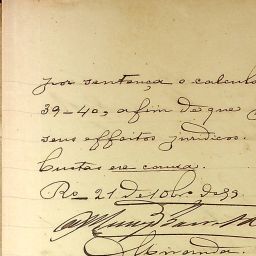 por sentença o calculo
39-40, afim de que
seus effeitos juridicos.
Custas ex causa.
Ro_ 21 de 10bro de 99
Miranda.